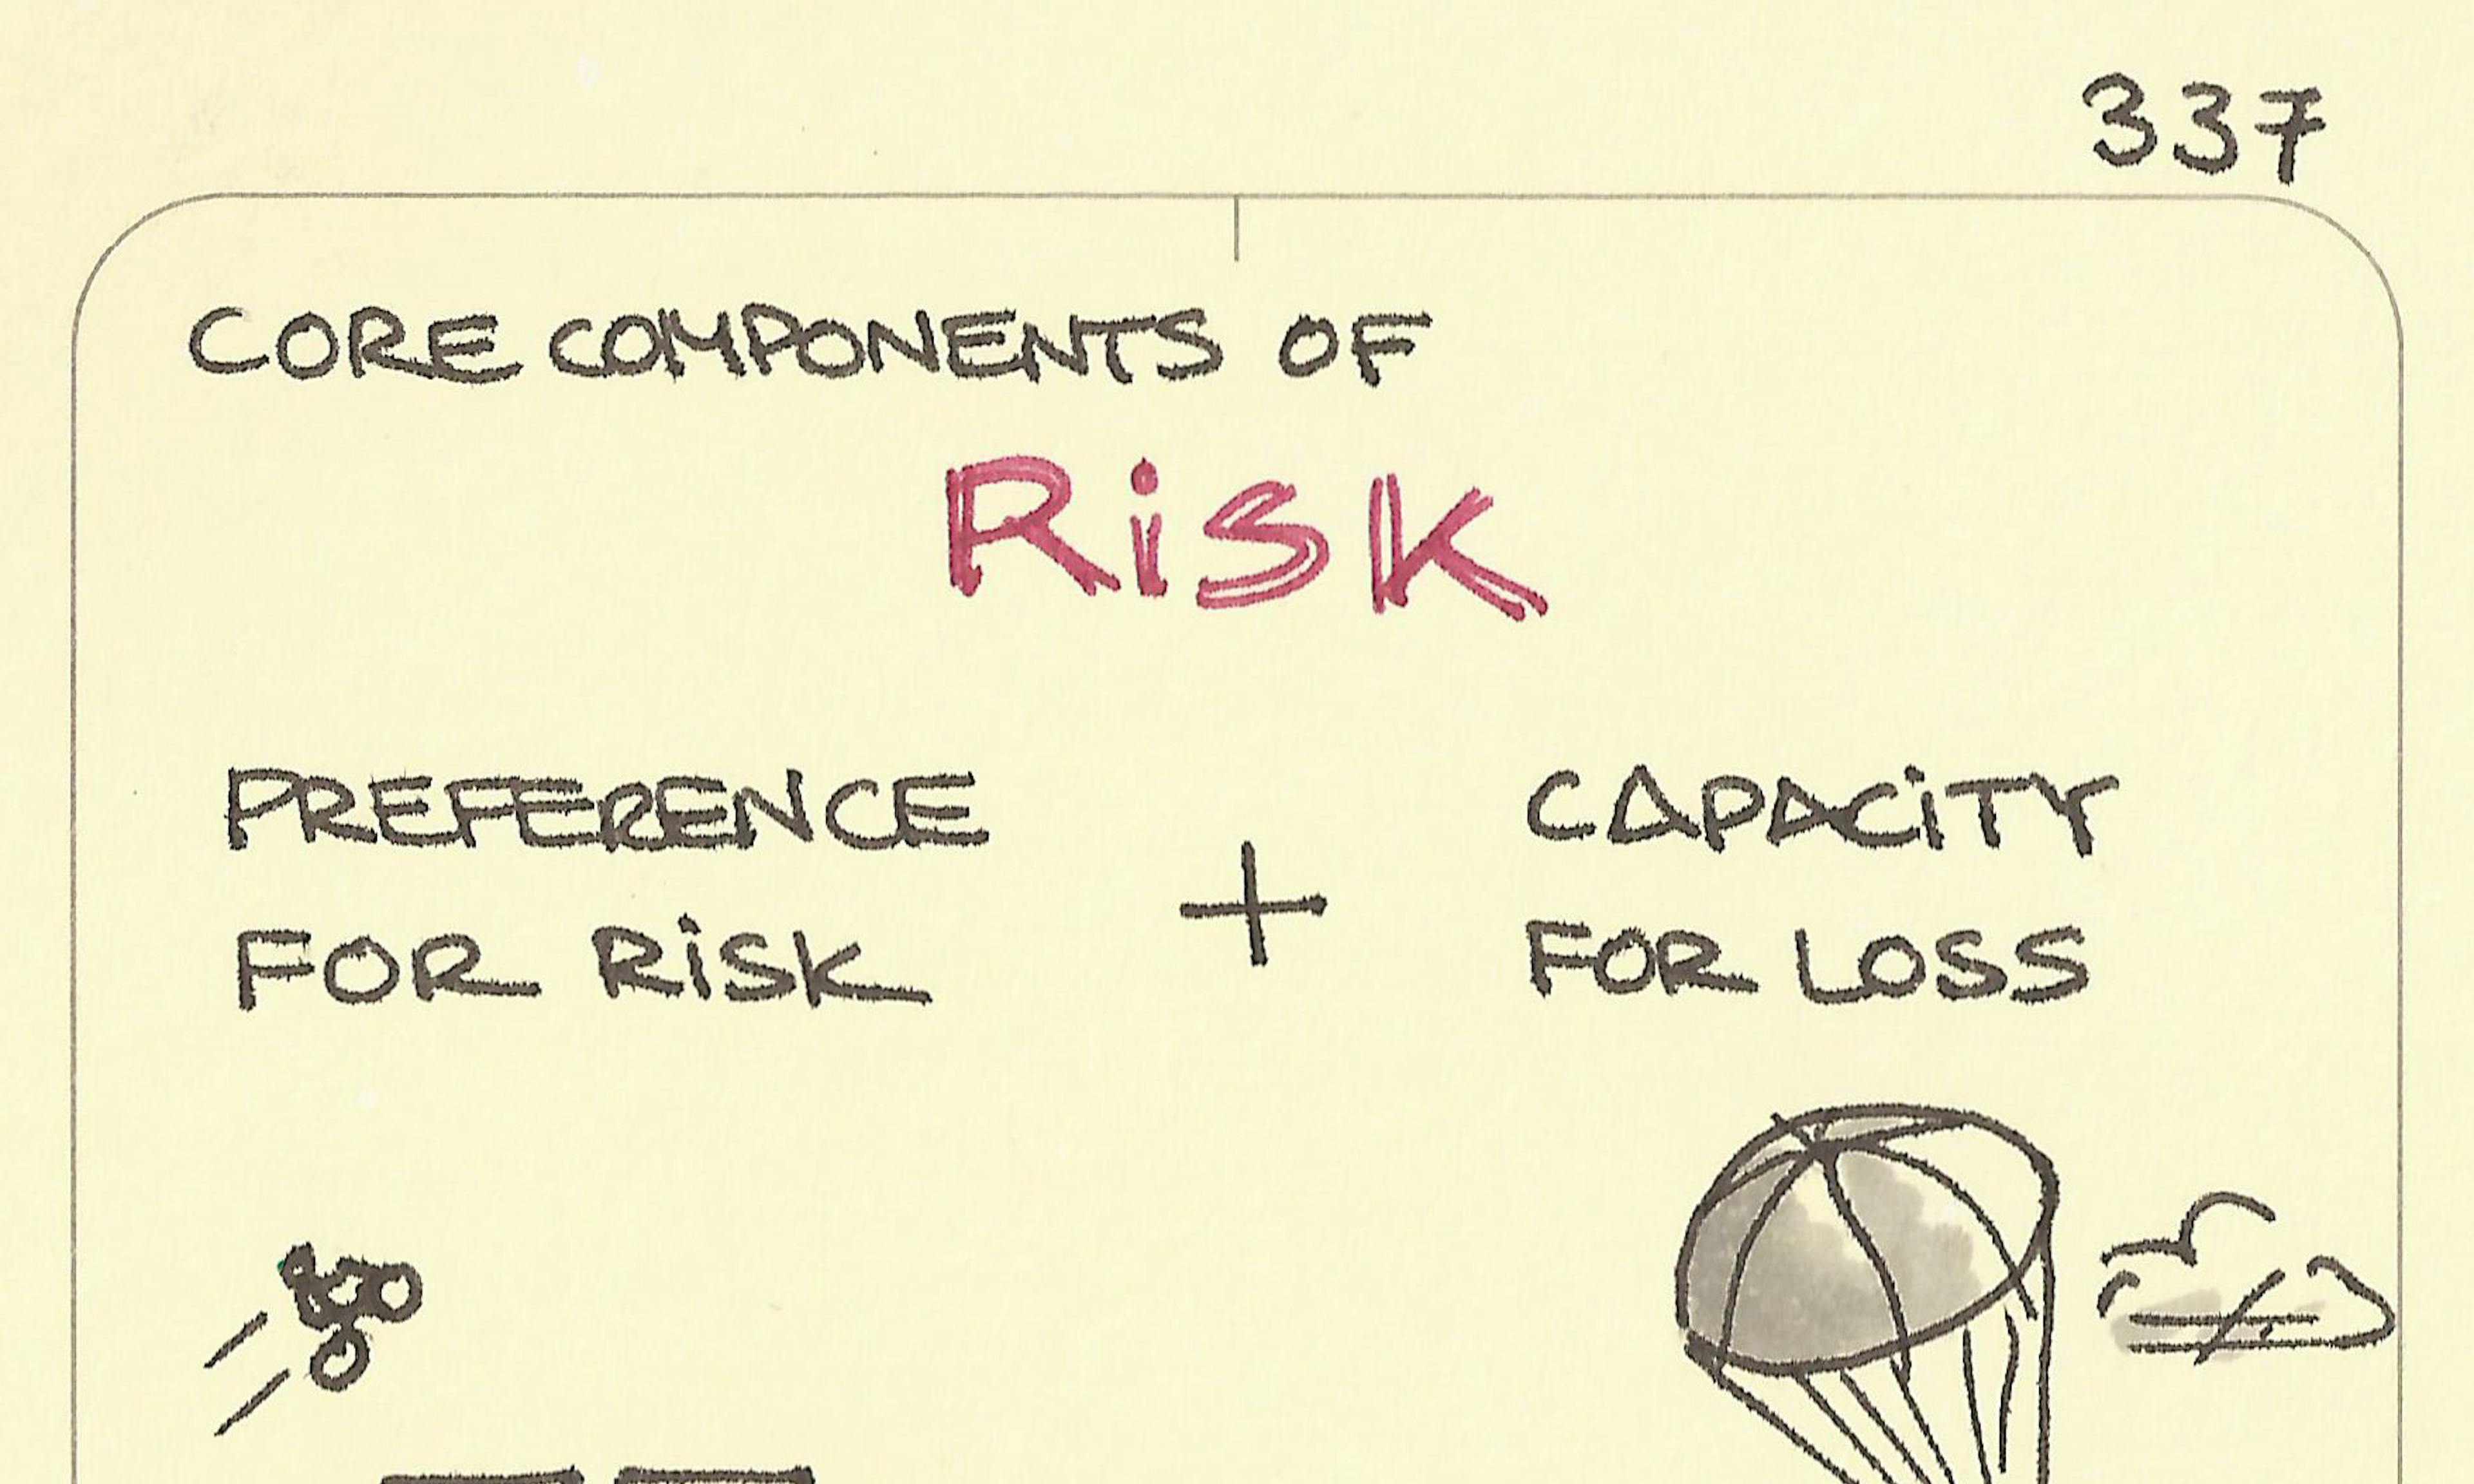 337
CORE COMPONENTS OF
RiSK
PREFERENCE
FOR RiSK
+
CAPACiTY
FOR LOSS